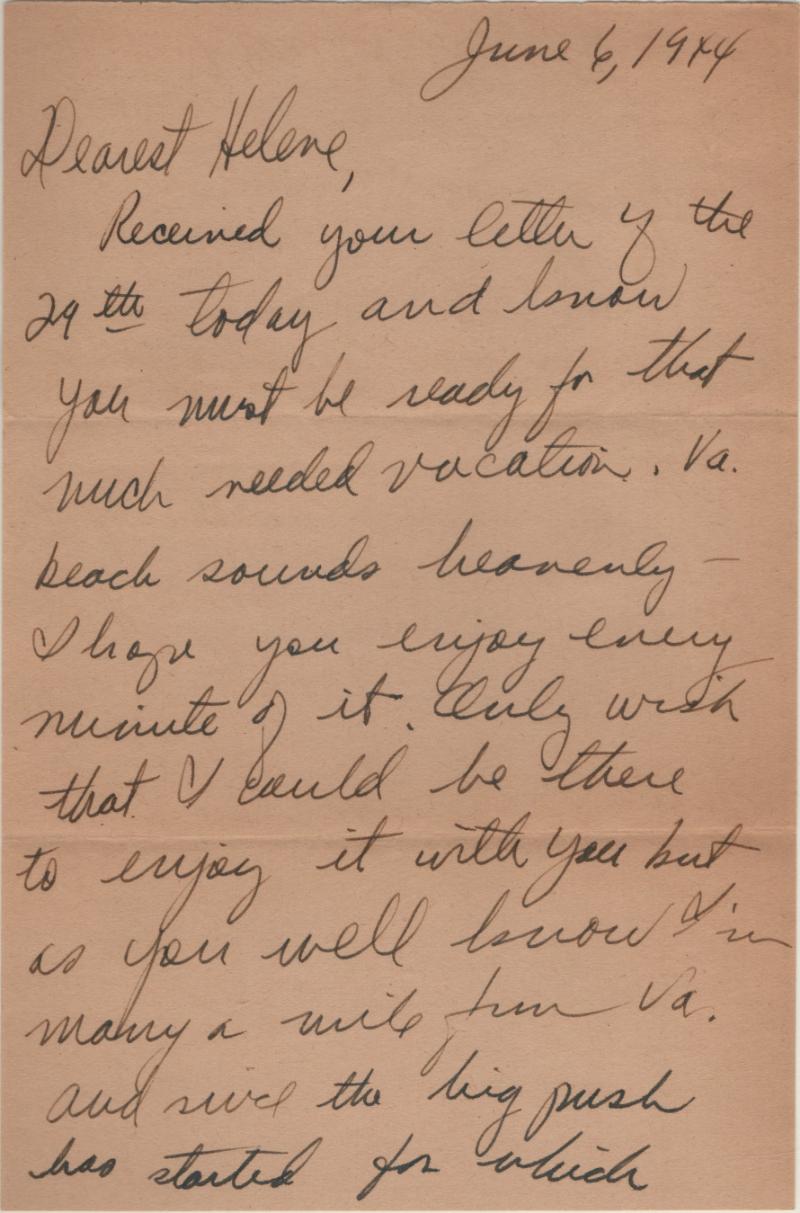 June 6, 1944
Dearest Helene,
Received your letter of the
29th today and know
you must be ready for that
much needed vacation. Va.
beach sounds heavenly –
I hope you enjoy every
minute of it. Only wish
that I could be there
to enjoy it with you but
as you well know I'm
many a mile from Va.
and since the big push
has started for which